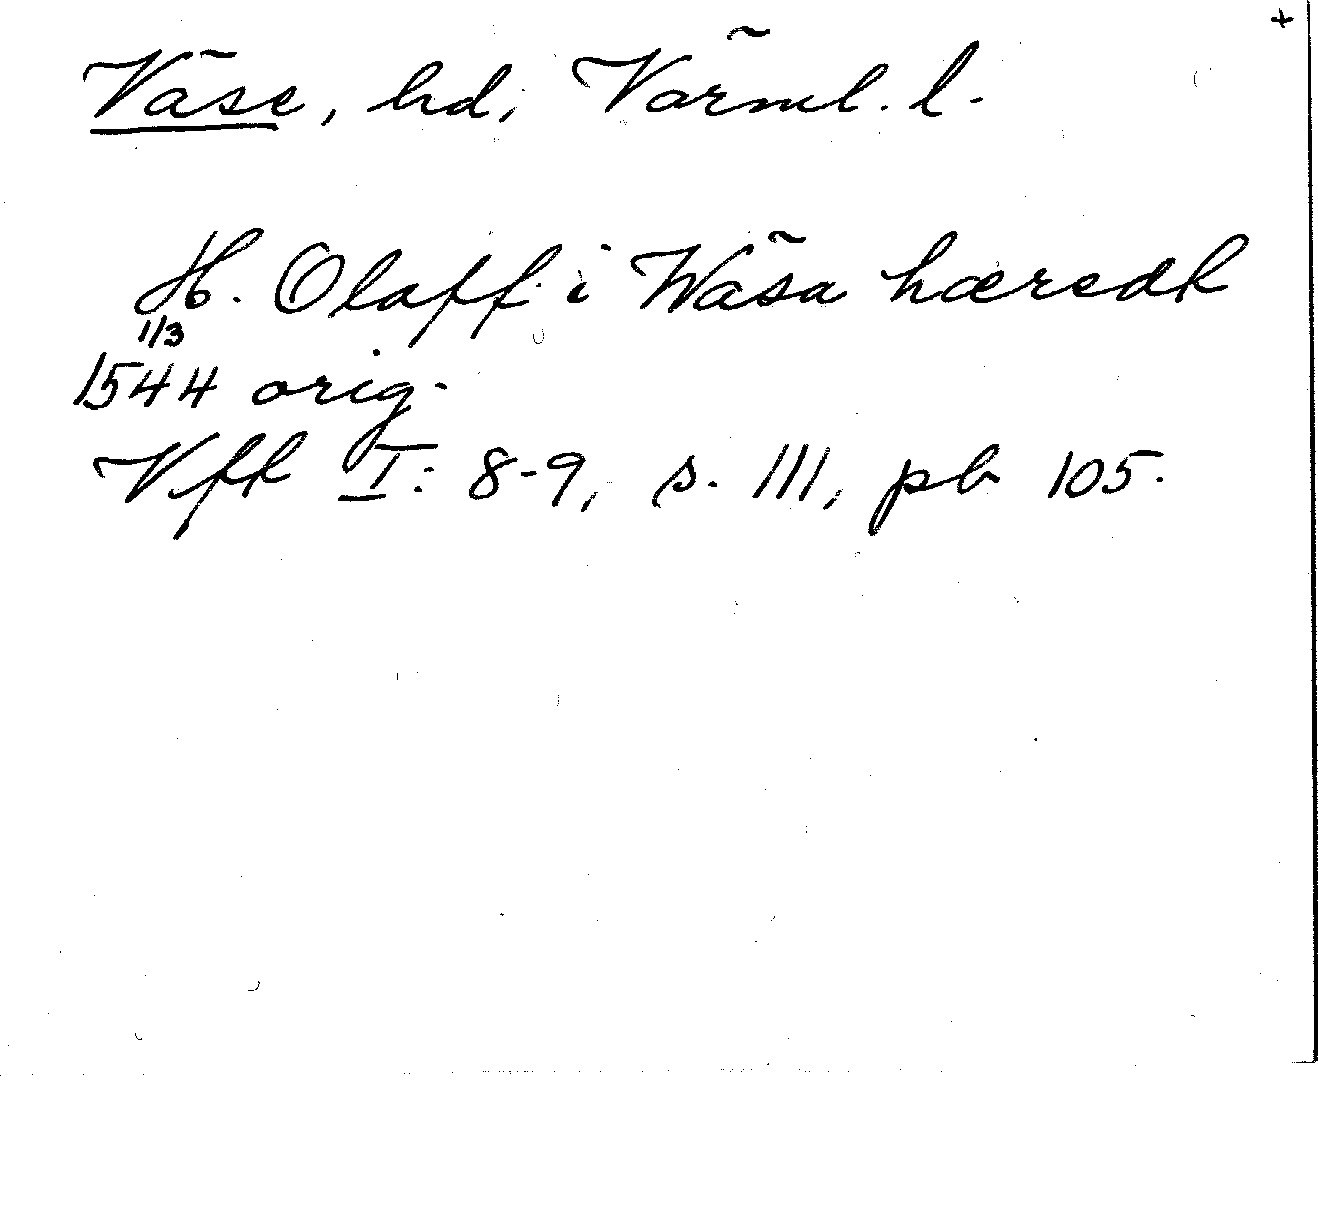 +
Väse, hd, Värml. l.
H. Olaff i Wäsa hæredh
1/3
1544 orig.
Vfh I: 8-9, s. 111, pb 105.